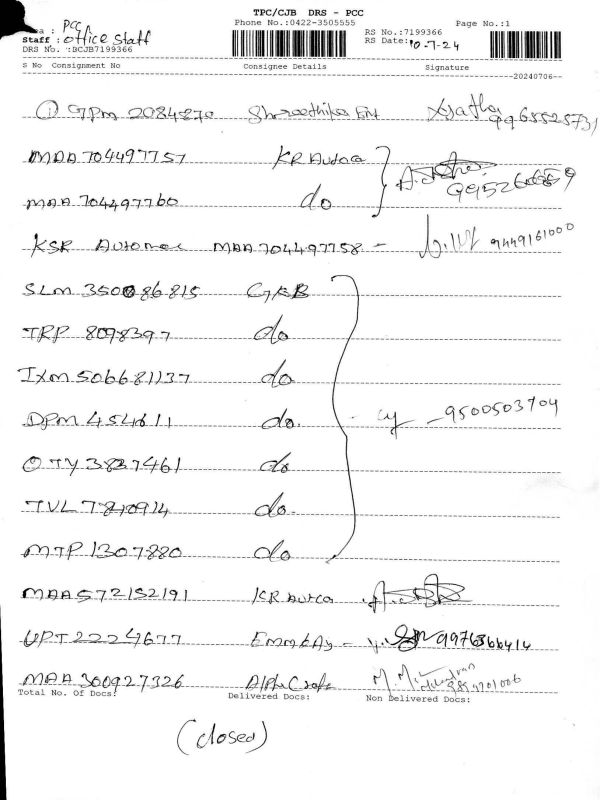 TPC/CJB DRS - PCC
Phone No.:0422-3505555 Page No.:1
Area : PCC RS No.:7199366
Staff : office staff RS Date: 10-7-24
DRS No. :BCJB7199366
S No Consignment No Consignee Details Signature
20240706
① GPM 2084870
MAA 704497757 KR Autoa
MAA 704497760 do
KSR Automac MAA 704497758 - 9449161000
SLM 350086815 GKB
TRP 8098397 do
IXM 506681137 do
DPM 454611 do. - 9500503704
OTY 3827461 do
TVL 7840914 do.
MTP 1307880 do
MAA 572152191 KR Autoa
UPT 2224677 Emmkay - 9976366414
MAA 300927326 Alpha Craft
Total No. Of Docs: Delivered Docs: Non Delivered Docs:
(closed)